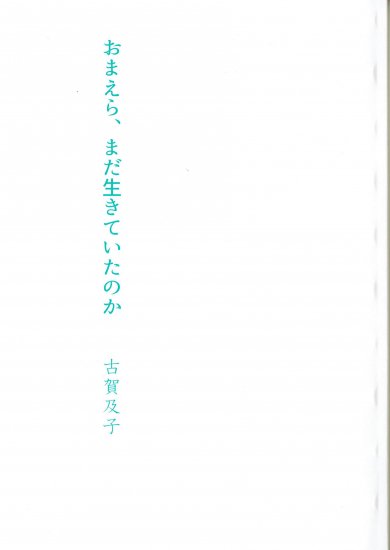 おまえら、まだ生きていたのか
古賀及子